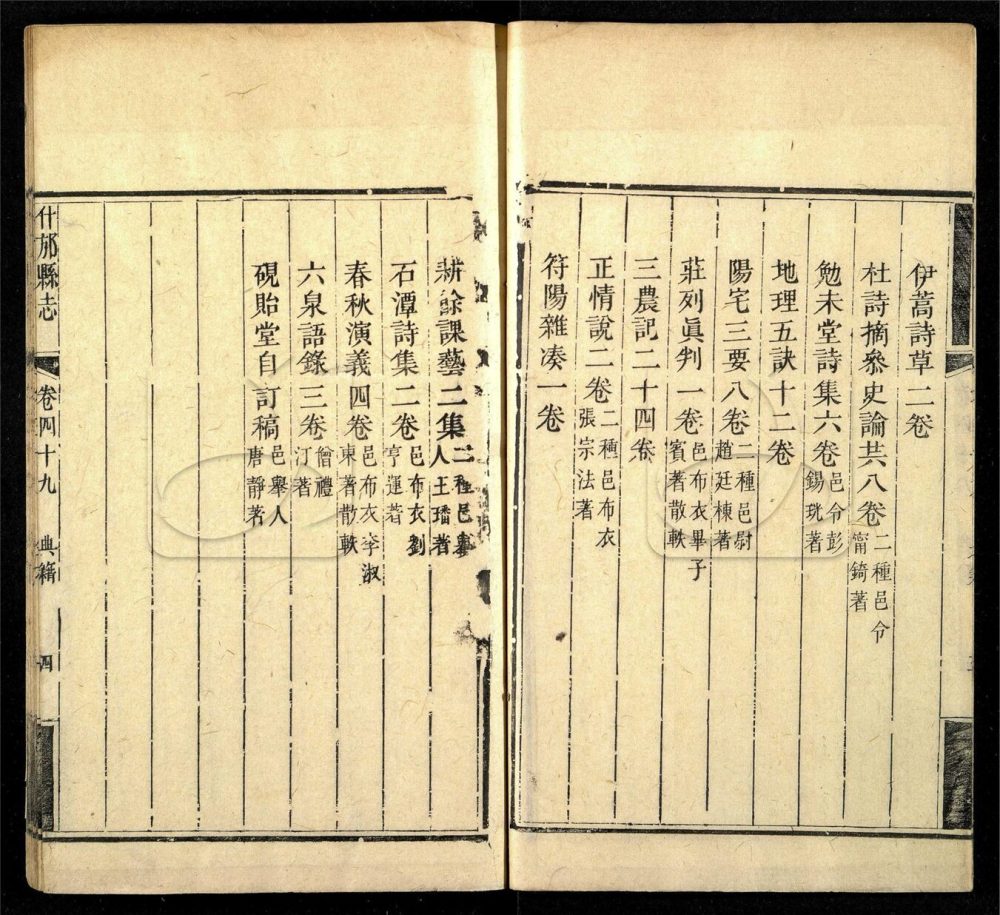 伊蒿詩草二卷
杜詩摘參史論共八卷二種邑令甯錡著
勉未堂詩集六卷邑令彭錫珖著
地理五訣十二卷
陽宅三要八卷二種邑尉趙廷棟著
莊列眞判一卷邑布衣畢子賓著散軼
三農記二十四卷
正情說二卷二種邑布衣張宗法著
符陽雜凑一卷
耕餘課藝二集二種邑舉人王璠著
石潭詩集二卷邑布衣劉亨運著
春秋演義四卷邑布衣李淑東著散軼
六泉語錄三卷僧禮汀著
硯貽堂自訂稿邑舉人唐靜著
什邡縣志 卷四十九 典籍 四